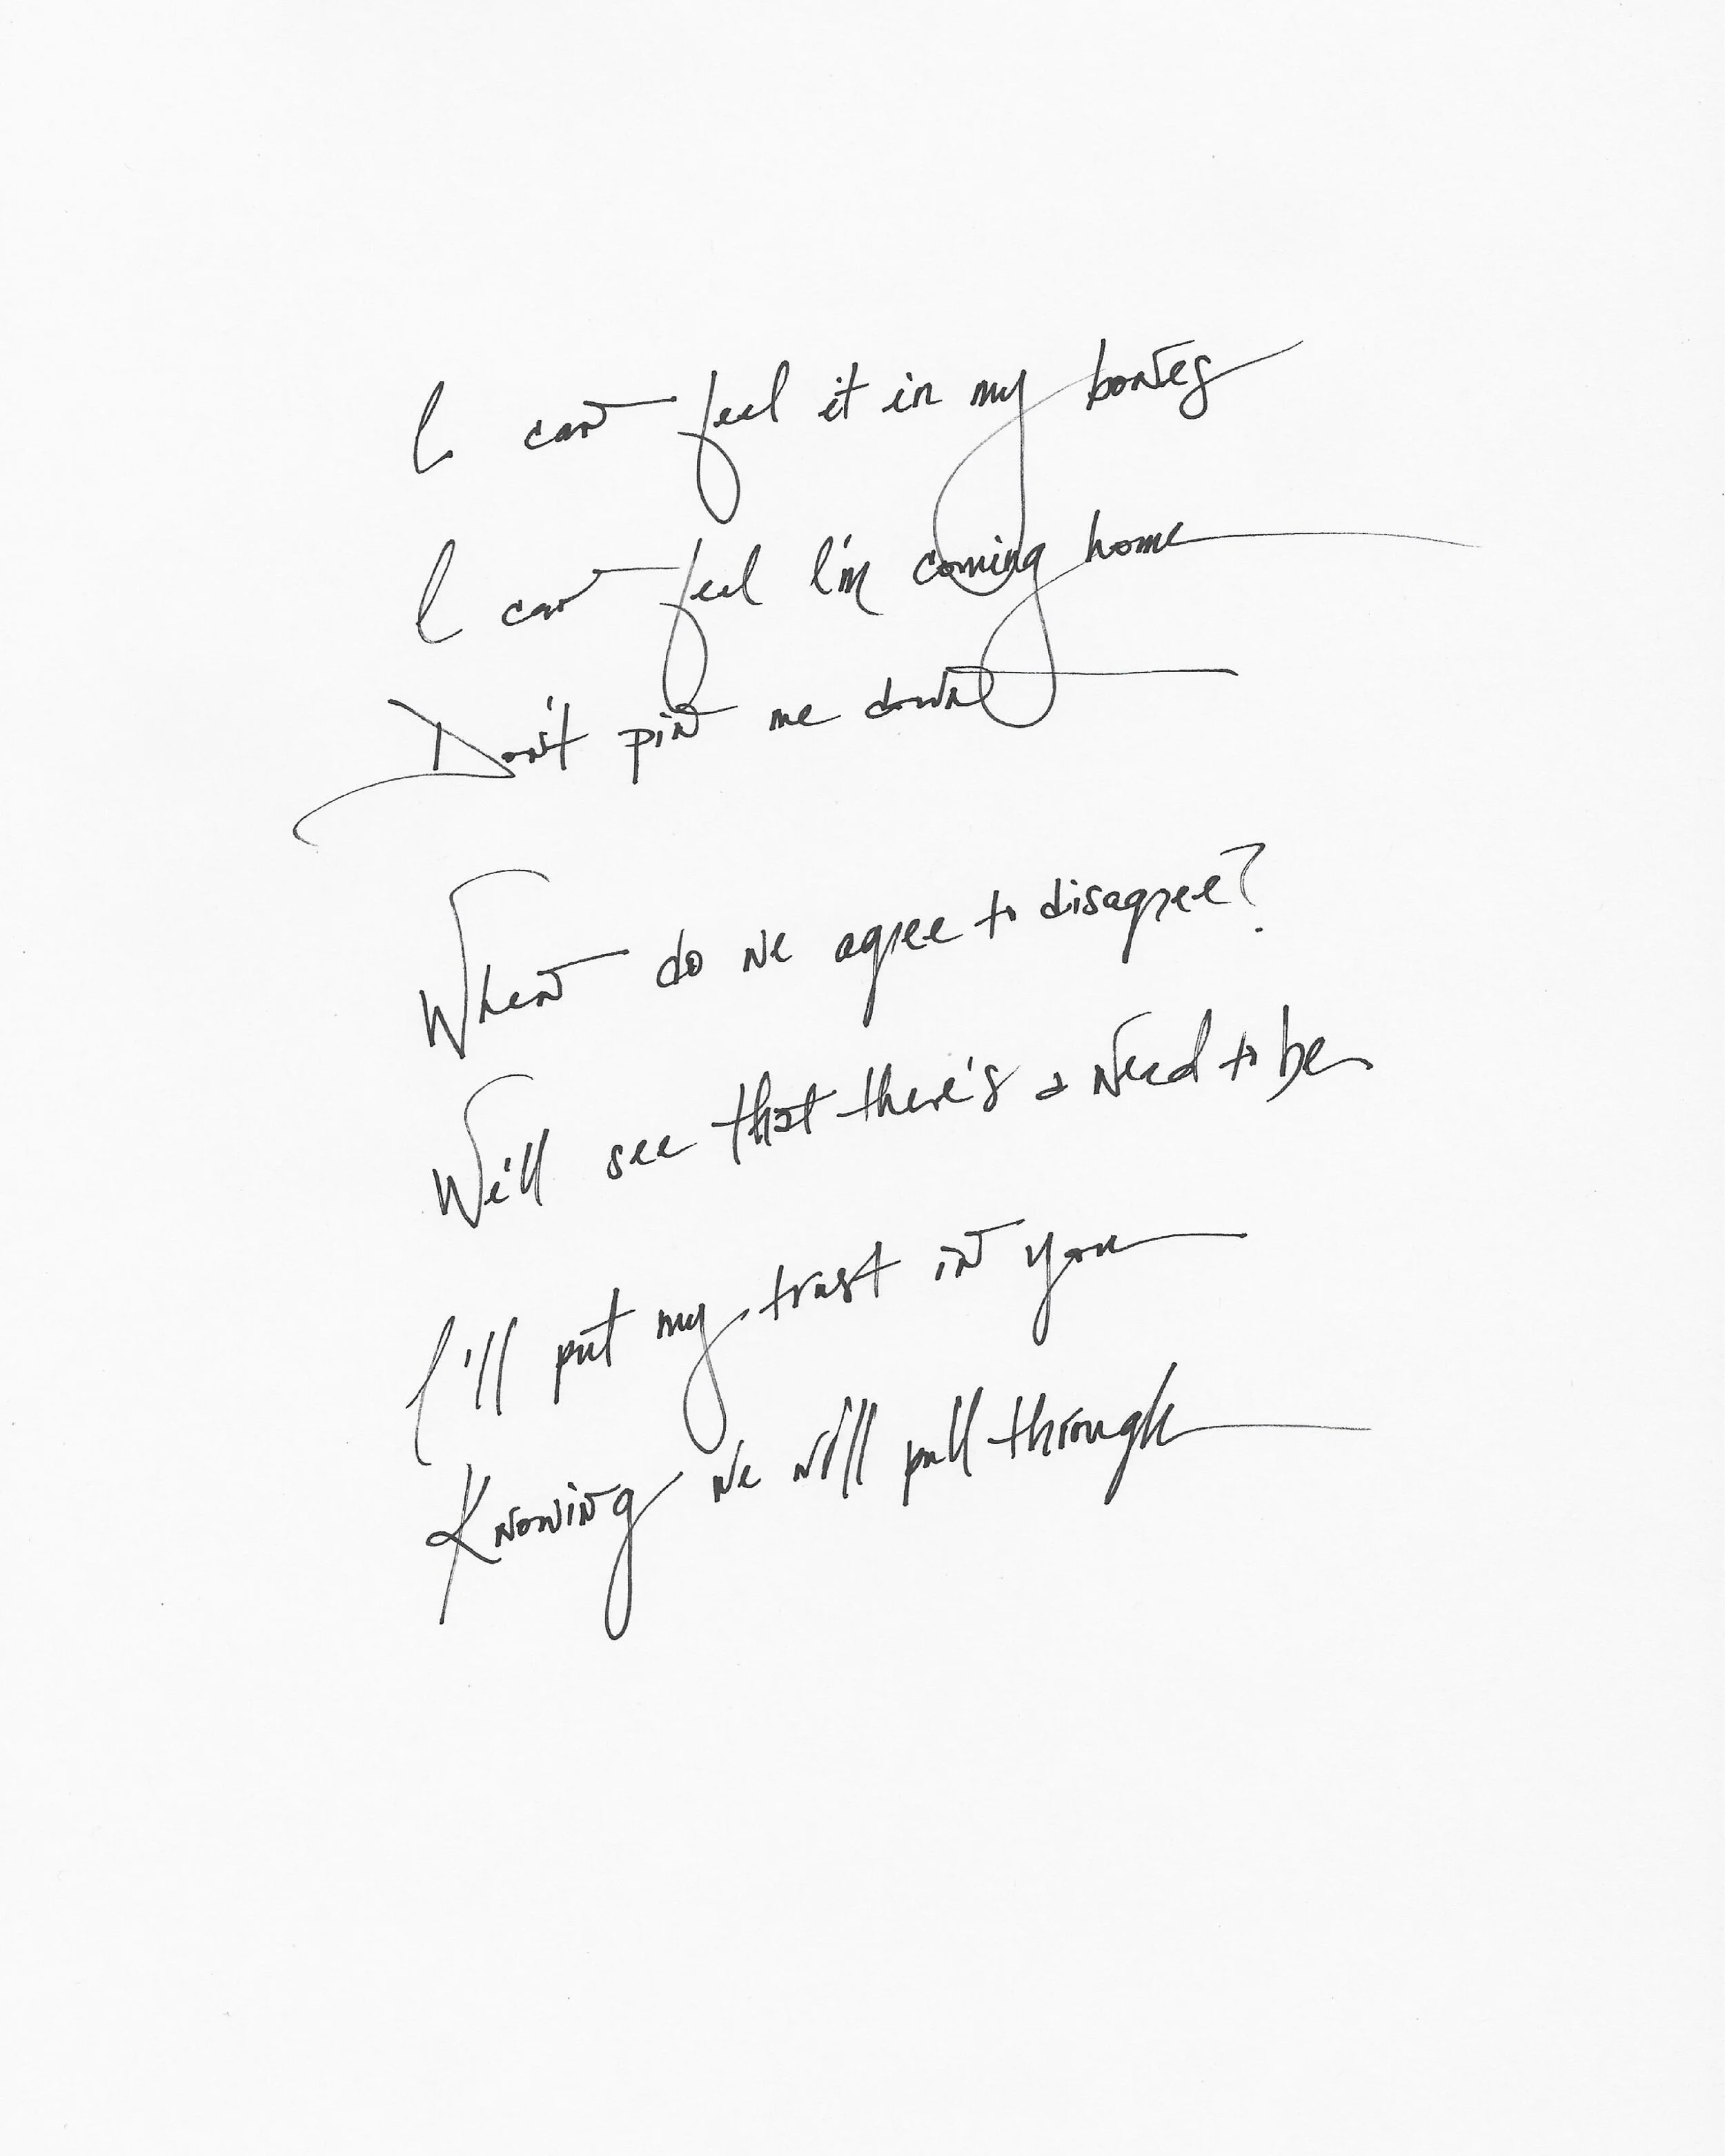 I can feel it in my bones
I can feel I'm coming home
Don't pin me down
When do we agree to disagree?
We'll see that there's a need to be
I'll put my trust in you
Knowing we will pull through